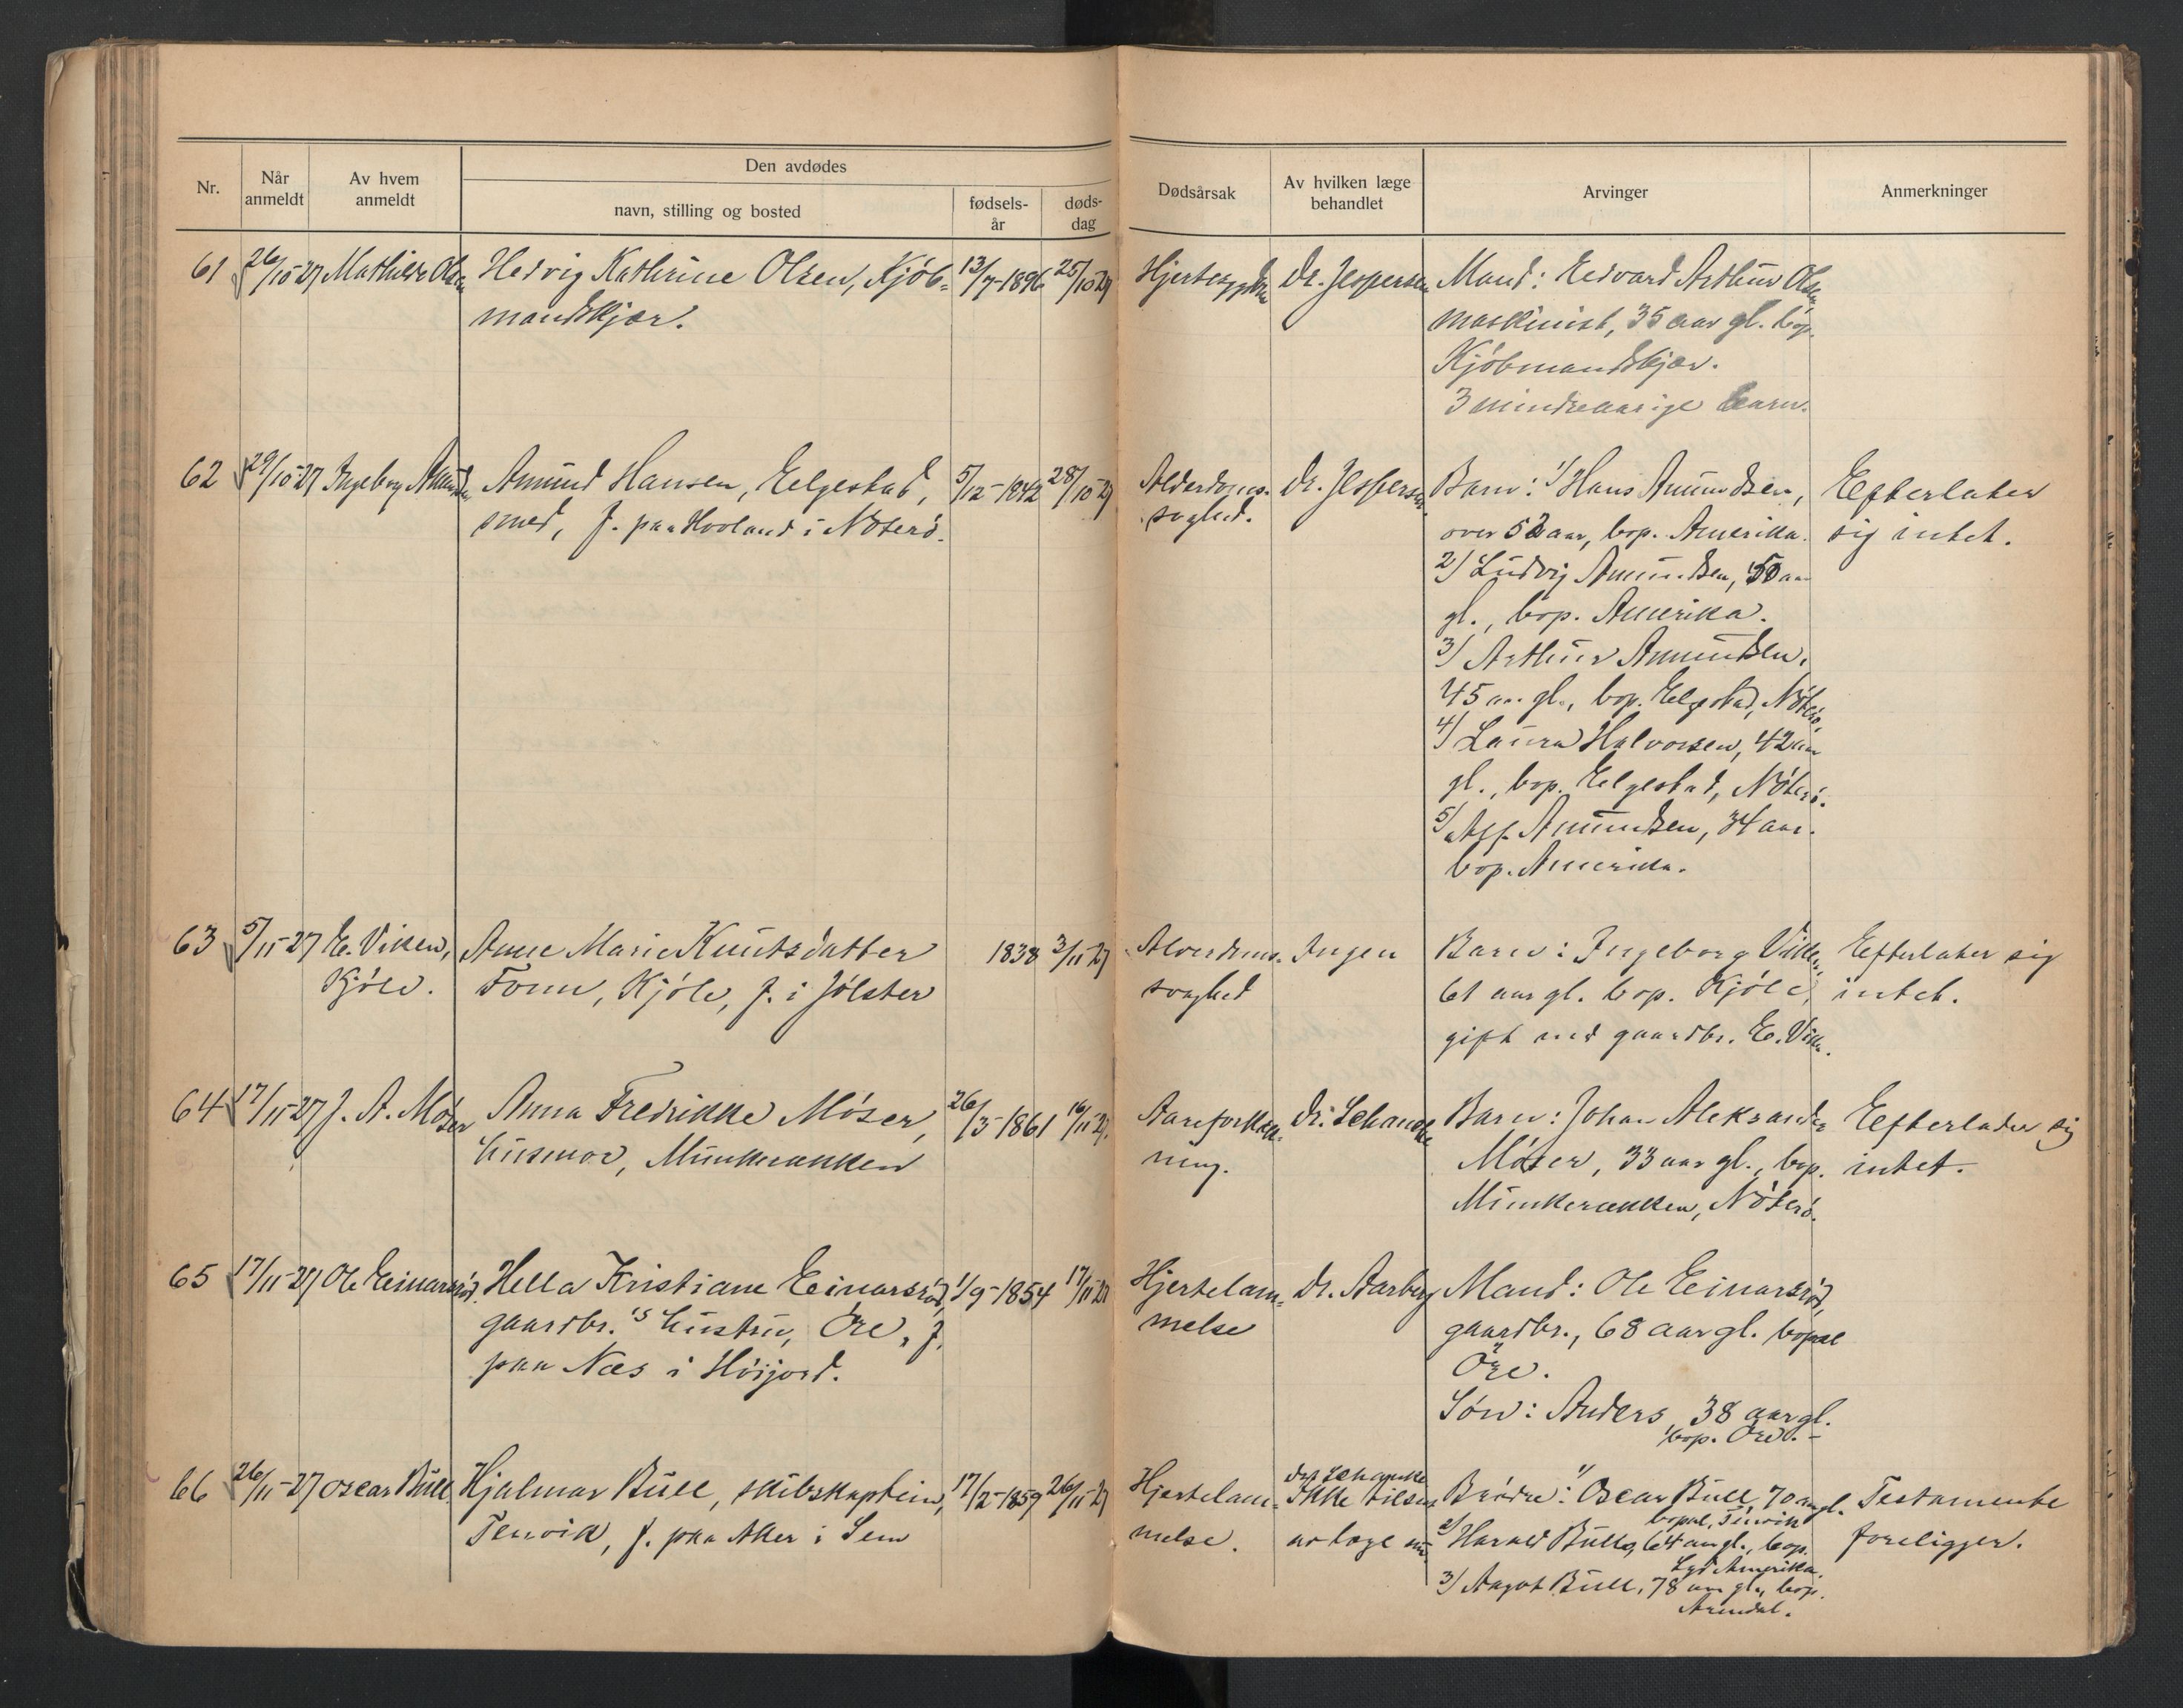 Nr.
Når anmeldt
Av hvem anmeldt
Den avdødes
navn, stilling og bosted
fødsels-
år
døds-
dag
Dødsårsak
Av hvilken læge
behandlet
Arvinger
Anmerkninger
61 26/10-27 Mathilde Olsen Hedvig Kathrine Olsen, Kjöb- 13/7-1896 25/10-27 Dr. Jespersen Mand: Edvard Arthur Olsen
mandskjær.
maskinist, 35 aar gl. bop.
Kjöbmandskjær.
3 mindreaarige barn.
62 29/10-27 Ingeborg Amundsen Amund Hansen, Elgestad, 5/12-1842 28/10-27 Alderdoms- Dr. Jespersen Barn: 1) Hans Amundsen, Efterlater
smed, f. paa Hovland i Nøterö.
svaghed.
over 52 aar, bop. Amerika. sig intet.
2) Ludvig Amundsen, 50 aar
gl., bop. Amerika.
3) Arthur Amundsen,
45 aar gl., bop. Elgestad, Nöterö,
4) Laura Halvorsen, 42 aar
gl., bop. Elgestad, Nöterö.
5) Alf Amundsen, 34 aar.
bop. Amerika.
63 5/11-27 E. Viken, Anne Marie Knutsdatter 1838 3/11-27 Alderdoms- Ingen Barn: Ingeborg Viken, Efterlater sig
Kjöle. Fonn, Kjöle, f. i Jölster svaghed 61 aar gl. bop. Kjöle, intet.
gift med gaardbr. E. Viken.
64 17/11-27 J. A. Möser Anna Fredrikke Möser, 26/3-1861 16/11-27. Aareforkalk- Dr. Schanche Barn: Johan Aleksander Efterlader sig
husmor, Munkerækken ning. Möser, 33 aar gl., bop. intet.
Munkerækken, Nöterö.
65 17/11-27 Ole Einarsröd Hella Kristiane Einarsröd, 1/9-1854 17/11-27 Hjertelam- Dr. Aarberg Mand: Ole Einarsröd,
gaardbr.'s hustru, Öre, f. melse gaardbr., 68 aar gl. bopæl
paa Næs i Höijord. Öre.
Sön: Anders, 38 aar gl.
bop. Öre.-
66 26/11-27 Oscar Bull Hjalmar Bull, skibskaptein, 17/2-1859 26/11-27 Hjertelam- Dr Schanche Brödre: 1) Oscar Bull, 70 aar gl. Testamente
Ikke tilset bopæl, Tenvik
Tenvik, f. paa Aker i Sem melse. av læge 2) Harald Bull, 64 aar gl., bop. foreligger.
Syd Amerika.
3) Aagot Bull, 78 aar gl., bop.
Arendal.